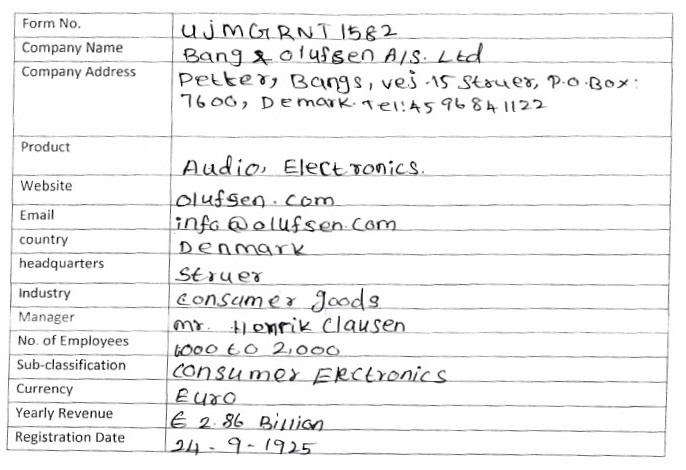 Form No. UJMGRNT1582
Company Name Bang & olufsen A/S. Ltd
Company Address Petter, Bangs, vej-15 Struer, P.O.Box:
7600, Demark. Tel:45 96 84 1122
Product Audio, Electronics.
Website olufsen.com
Email info@olufsen.com
country Denmark
headquarters Struer
Industry consumer goods
Manager mr. Henrik Clausen
No. of Employees 1000 to 2,000
Sub-classification consumer Electronics
Currency Euro
Yearly Revenue € 2.86 Billion
Registration Date 24-9-1925